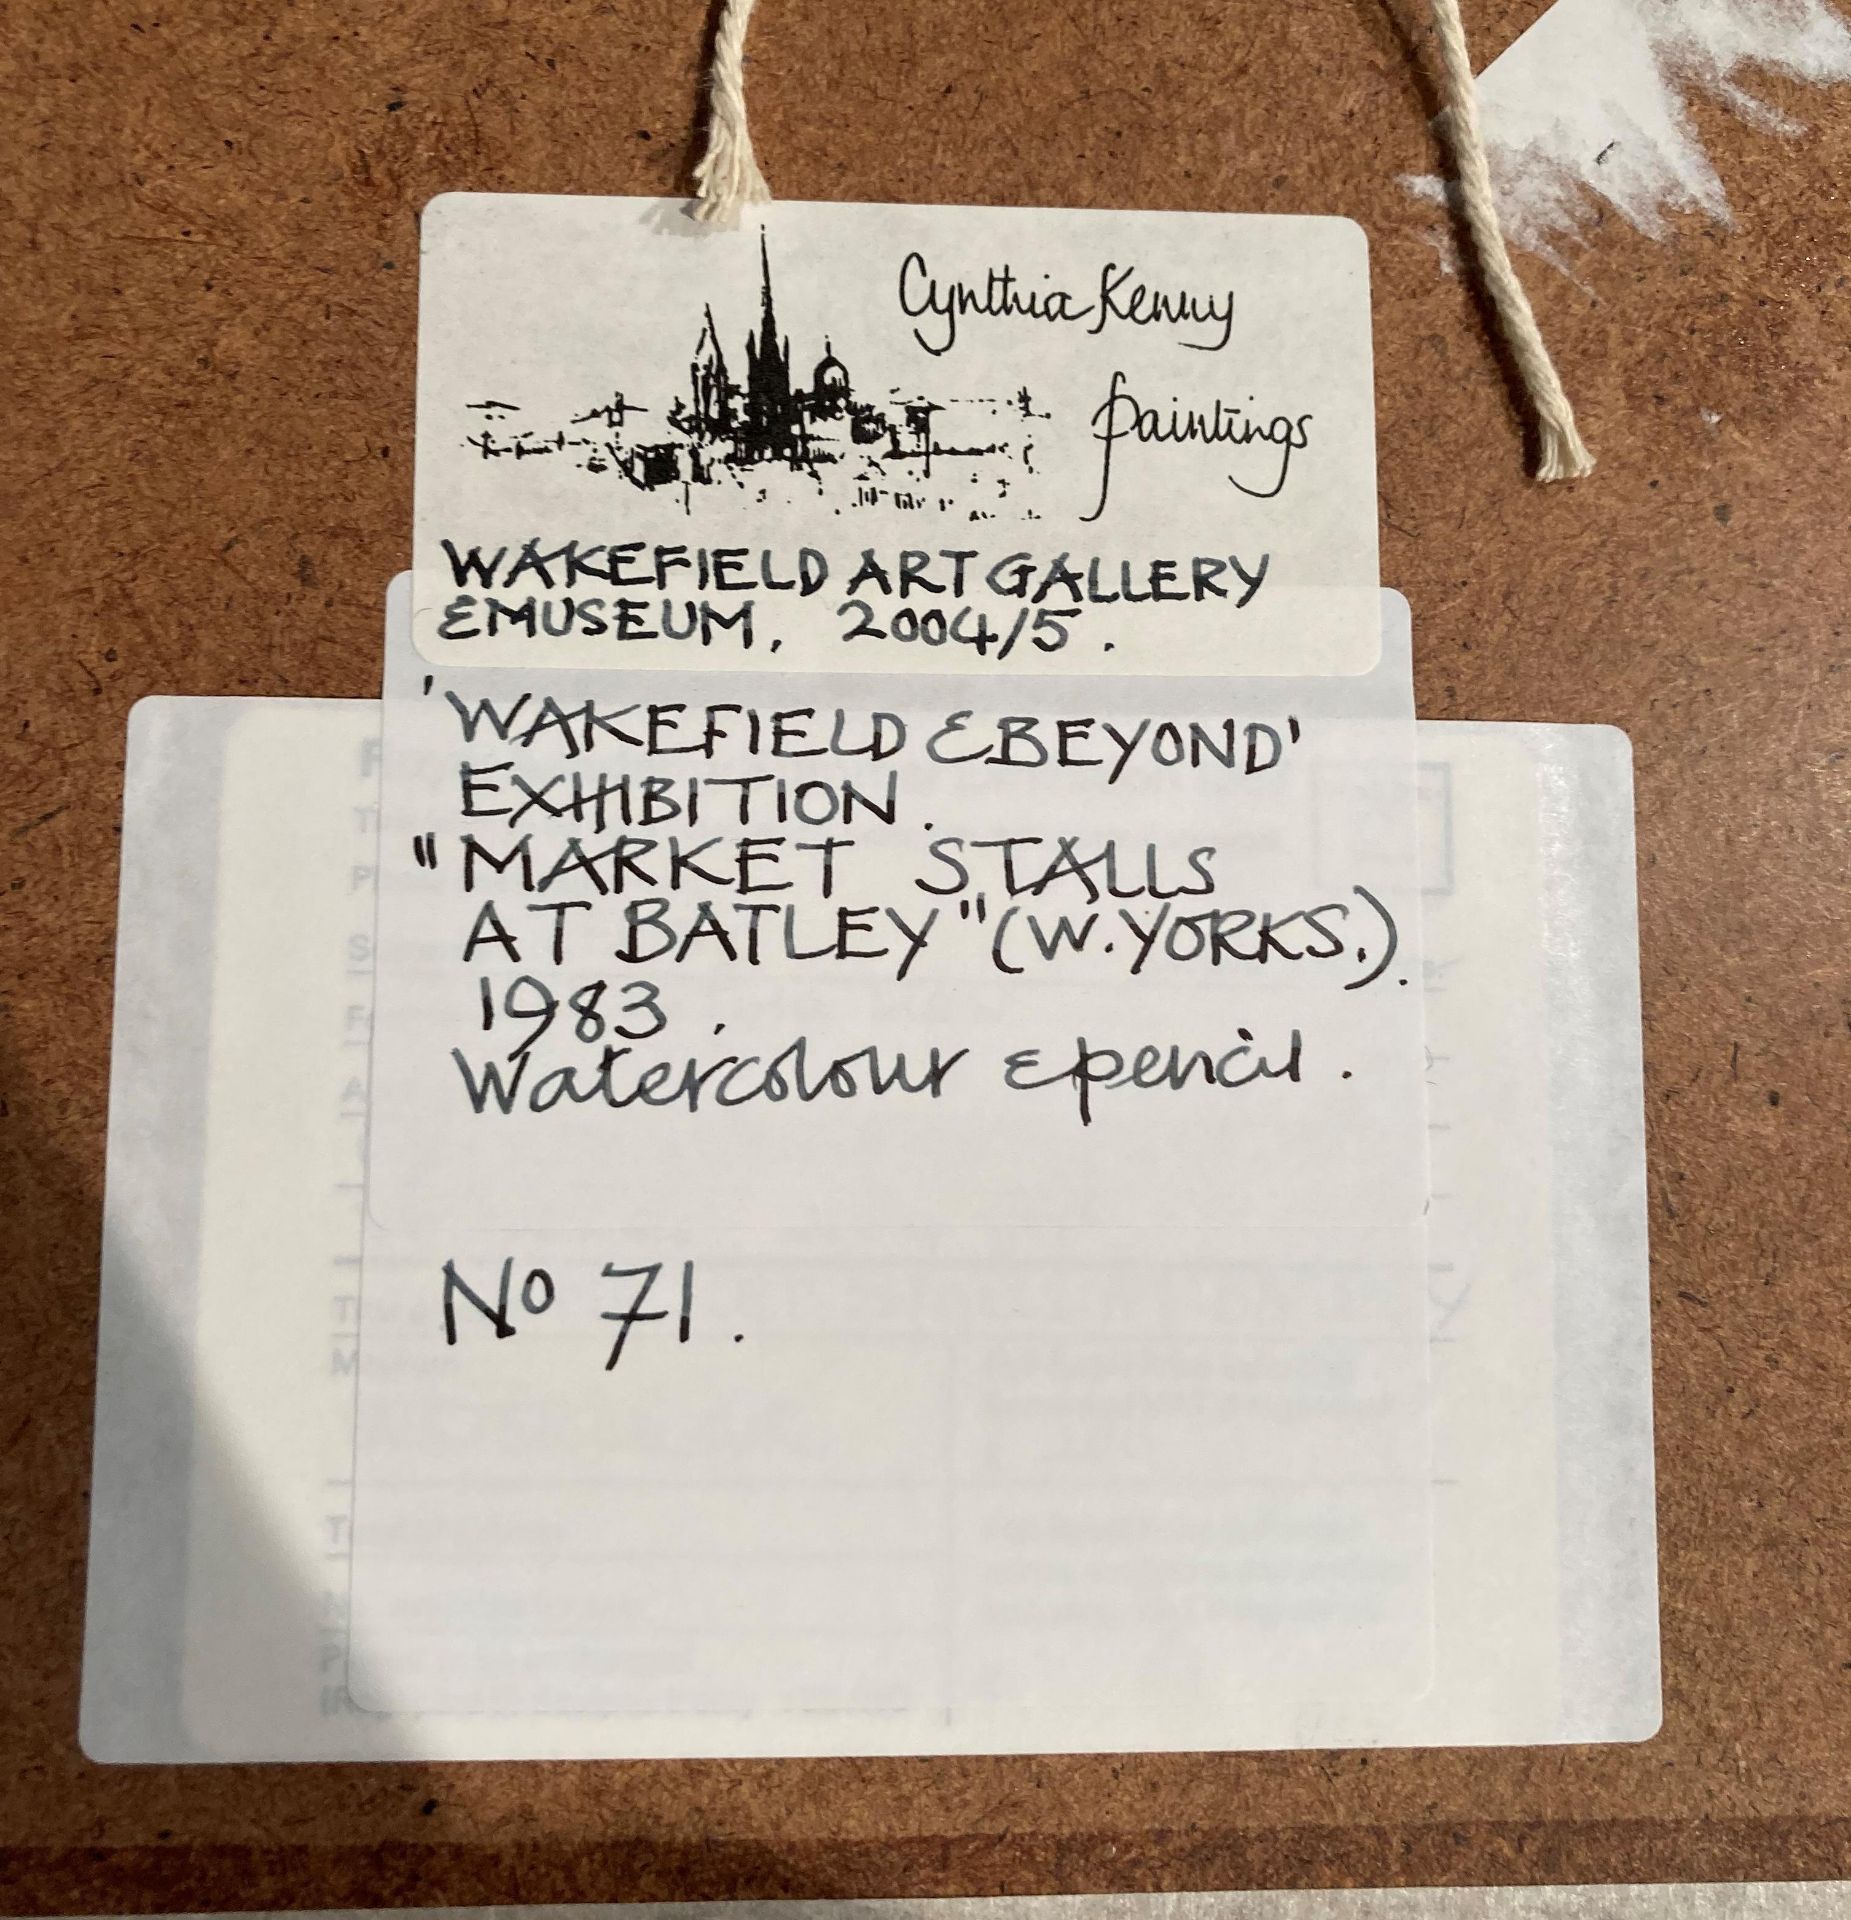 Cynthia Kenny
paintings
WAKEFIELD ART GALLERY
& MUSEUM. 2004/5.
'WAKEFIELD & BEYOND'
EXHIBITION.
"MARKET STALLS
AT BATLEY" (W. YORKS.).
1983.
Watercolour & pencil.
No 71.